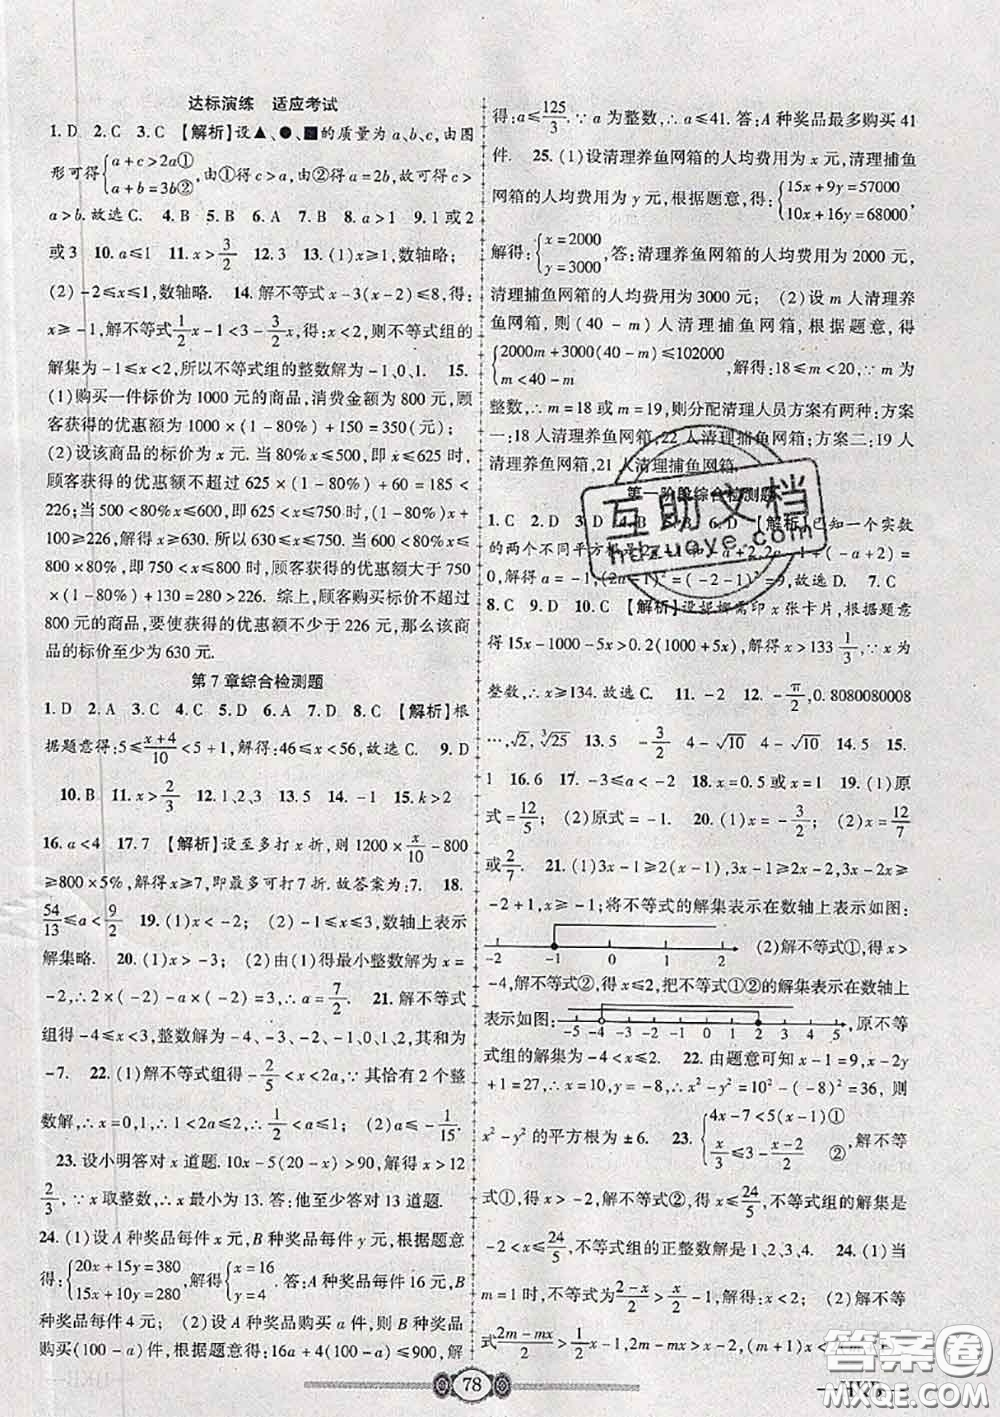 达标演练　适应考试
1. D　2. C　3. C　【解析】设▲、●、■的质量为 a、b、c,由图
形可得{a+c>2a① a+b=3b②,由①得 c>a,由②得 a=2b,故可得 c>
a>b.故选 C.　4. B　5. B　6. A　7. B　8. a>1　9. 1 或 2
或 3　10. a≤1　11. x>3/2　12. 3　13. (1)x≥1,数轴略;
(2)-2≤x≤1,数轴略.　14. 解不等式 x-3(x-2)≤8,得:
x≥-1,解不等式1/2x-1<3-3/2x,得:x<2,则不等式组的
解集为-1≤x<2,所以不等式组的整数解为-1、0、1.　15.
(1)购买一件标价为 1000 元的商品,消费金额为 800 元,顾
客获得的优惠额为 1000×(1-80%)+150=350(元);
(2)设该商品的标价为 x 元.当 80%x≤500,即 x≤625 时,
顾客获得的优惠额不超过 625×(1-80%)+60=185<
226;当 500<80%x≤600,即 625<x≤750 时,(1-80%)x+
100≥226,解得 x≥630.所以 630≤x≤750.当 600<80%x≤
700,即 750<x≤875 时,因为顾客购买标价不超过 800 元,
所以 750<x≤800 时,顾客获得的优惠额大于 750×
(1-80%)+130=280>226. 综上,顾客购买标价不超过
800 元的商品,要使获得的优惠额不少于 226 元,那么该商
品的标价至少为 630 元.
第 7 章综合检测题
1. D　2. A　3. C　4. C　5. D　6. A　7. D　8. C　【解析】根
据题意得:5≤(x+4)/10<5+1,解得:46≤x<56,故选 C.　9. D
10. B　11. x>2/3　12. 1、2、3　13. 5　14. -1　15. k>2
16. a<4　17. 7　【解析】设至多打 x 折,则 1200×x/10-800
≥800×5%,解得 x≥7,即最多可打 7 折.故答案为:7.　18.
54/13≤a<9/2　19. (1)x>2; (2)-1≤x≤3,数轴上表示
解集略.　20. (1)x>-3; (2)由(1)得最小整数解为 x=
-2,∴2×(-2)-a×(-2)=3,∴a=7/2.　21. 解不等式
组得-4≤x<3,整数解为-4、-3、-2、-1、0、1、2,其和为
-7.　22. (1)解不等式组得-2/5<x<2a,∵其恰有 2 个整
数解,∴x=0,1,∴1<2a≤2,∴1/2<a≤1; (2)a≤-1/15.
23. 设小明答对 x 道题.10x-5(20-x)>90,解得 x>12
2/3,∵x 取整数,∴x 最小为 13.答:他至少答对 13 道题.
24. (1)设 A 种奖品每件 x 元,B 种奖品每件 y 元,根据题意
得:{20x+15y=380 15x+10y=280,解得{x=16 y=4.答:A 种奖品每件 16 元,B
种奖品每件 4 元; (2)设 A 种奖品购买 a 件,则 B 种奖品
购买(100-a)件,根据题意得:16a+4(100-a)≤900,解
得:a≤125/3.∵a 为整数,∴a≤41.答:A 种奖品最多购买 41
件.　25. (1)设清理养鱼网箱的人均费用为 x 元,清理捕鱼
网箱的人均费用为 y 元,根据题意,得:{15x+9y=57000 10x+16y=68000,
解得:{x=2000 y=3000,答:清理养鱼网箱的人均费用为 2000 元,清
理捕鱼网箱的人均费用为 3000 元; (2)设 m 人清理养
鱼网箱,则(40-m)人清理捕鱼网箱,根据题意,得
{2000m+3000(40-m)≤102000 m<40-m,解得:18≤m<20,∵m 为
整数,∴m=18 或 m=19,则分配清理人员方案有两种:方案
一:18 人清理养鱼网箱,22 人清理捕鱼网箱;方案二:19 人
清理养鱼网箱,21 人清理捕鱼网箱.
第一阶段综合检测题
1. C　2. D　3. D　4. B　5. B　6. D　【解析】已知一个实数
的两个不同平方根是 a+2,2a-1+(-a+2)=0
,解得 a=-1,(2a-1)²=(-2-1)²=9,故选 D.　7. C
8. C　9. D　10. C　【解析】设妮娜需印 x 张卡片,根据题意
得 15x-1000-5x>0.2(1000+5x),解得:x>133 1/3,∵x 为
整数,∴x≥134.故选 C.　11. <　12. -π/2,0.8080080008
…,√2,∛25　13. 5　-3/2　4-√10　4-√10　14. 5　15.
1　16. 6　17. -3≤a<-2　18. x=0.5 或 x=2　19. (1)原
式=12/5; (2)原式=-1.　20. (1)x=-3/2; (2)x=12/7
或2/7.　21. (1)3x-1≥2(x-1),3x-1≥2x-2,3x-2x≥
-2+1,x≥-1;将不等式的解集表示在数轴上表示如图:
-2　-1　0　1　2　(2)解不等式①,得 x>
-4,解不等式②,得 x≤2,把不等式①②的解集表示在数轴上
表示如图:-5 -4 -3 -2 -1 0 1 2 3 4 5,原不等
式组的解集为-4<x≤2.　22. 由题意可知 x-1=9,x-2y
+1=27,∴x=10,y=-8,∴x²-y²=10²-(-8)²=36,则
x²-y² 的平方根为±6.　23. {4x-7<5(x-1)① x/3≤3-(x-2)/2②,解不等
式①,得 x>-2,解不等式②,得 x≤24/5,不等式组的解集是
-2<x≤24/5,不等式组的正整数解是 1、2、3、4.　24. (1)当
m=1 时,不等式为(2-x)/2>x/2-1,解得 x<2; (2)解不等
式(2m-mx)/2>x/2-1,2m-mx>x-2,∴(m+1)x<2(m+1),
78
— HKB
互助文档
hdzuoye.com
答案圈
MXQE.COM